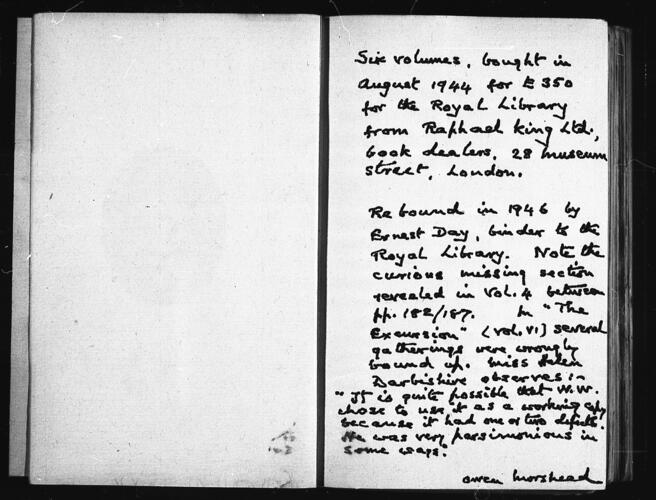 Six volumes, bought in
August 1944 for £350
for the Royal Library
from Raphael King Ltd.,
book dealers, 28 Museum
Street, London.
Rebound in 1946 by
Ernest Day, binder to the
Royal Library. Note the
curious missing section
revealed in Vol. 4 between
pp. 182/187. In "The
Excursion" (Vol. VI) several
gatherings were wrongly
bound up. Miss Helen
Darbishire observes:-
"It is quite possible that W.W.
chose to use it as a working copy
because it had one or two defects.
He was very parsimonious in
some ways."
Owen Morshead